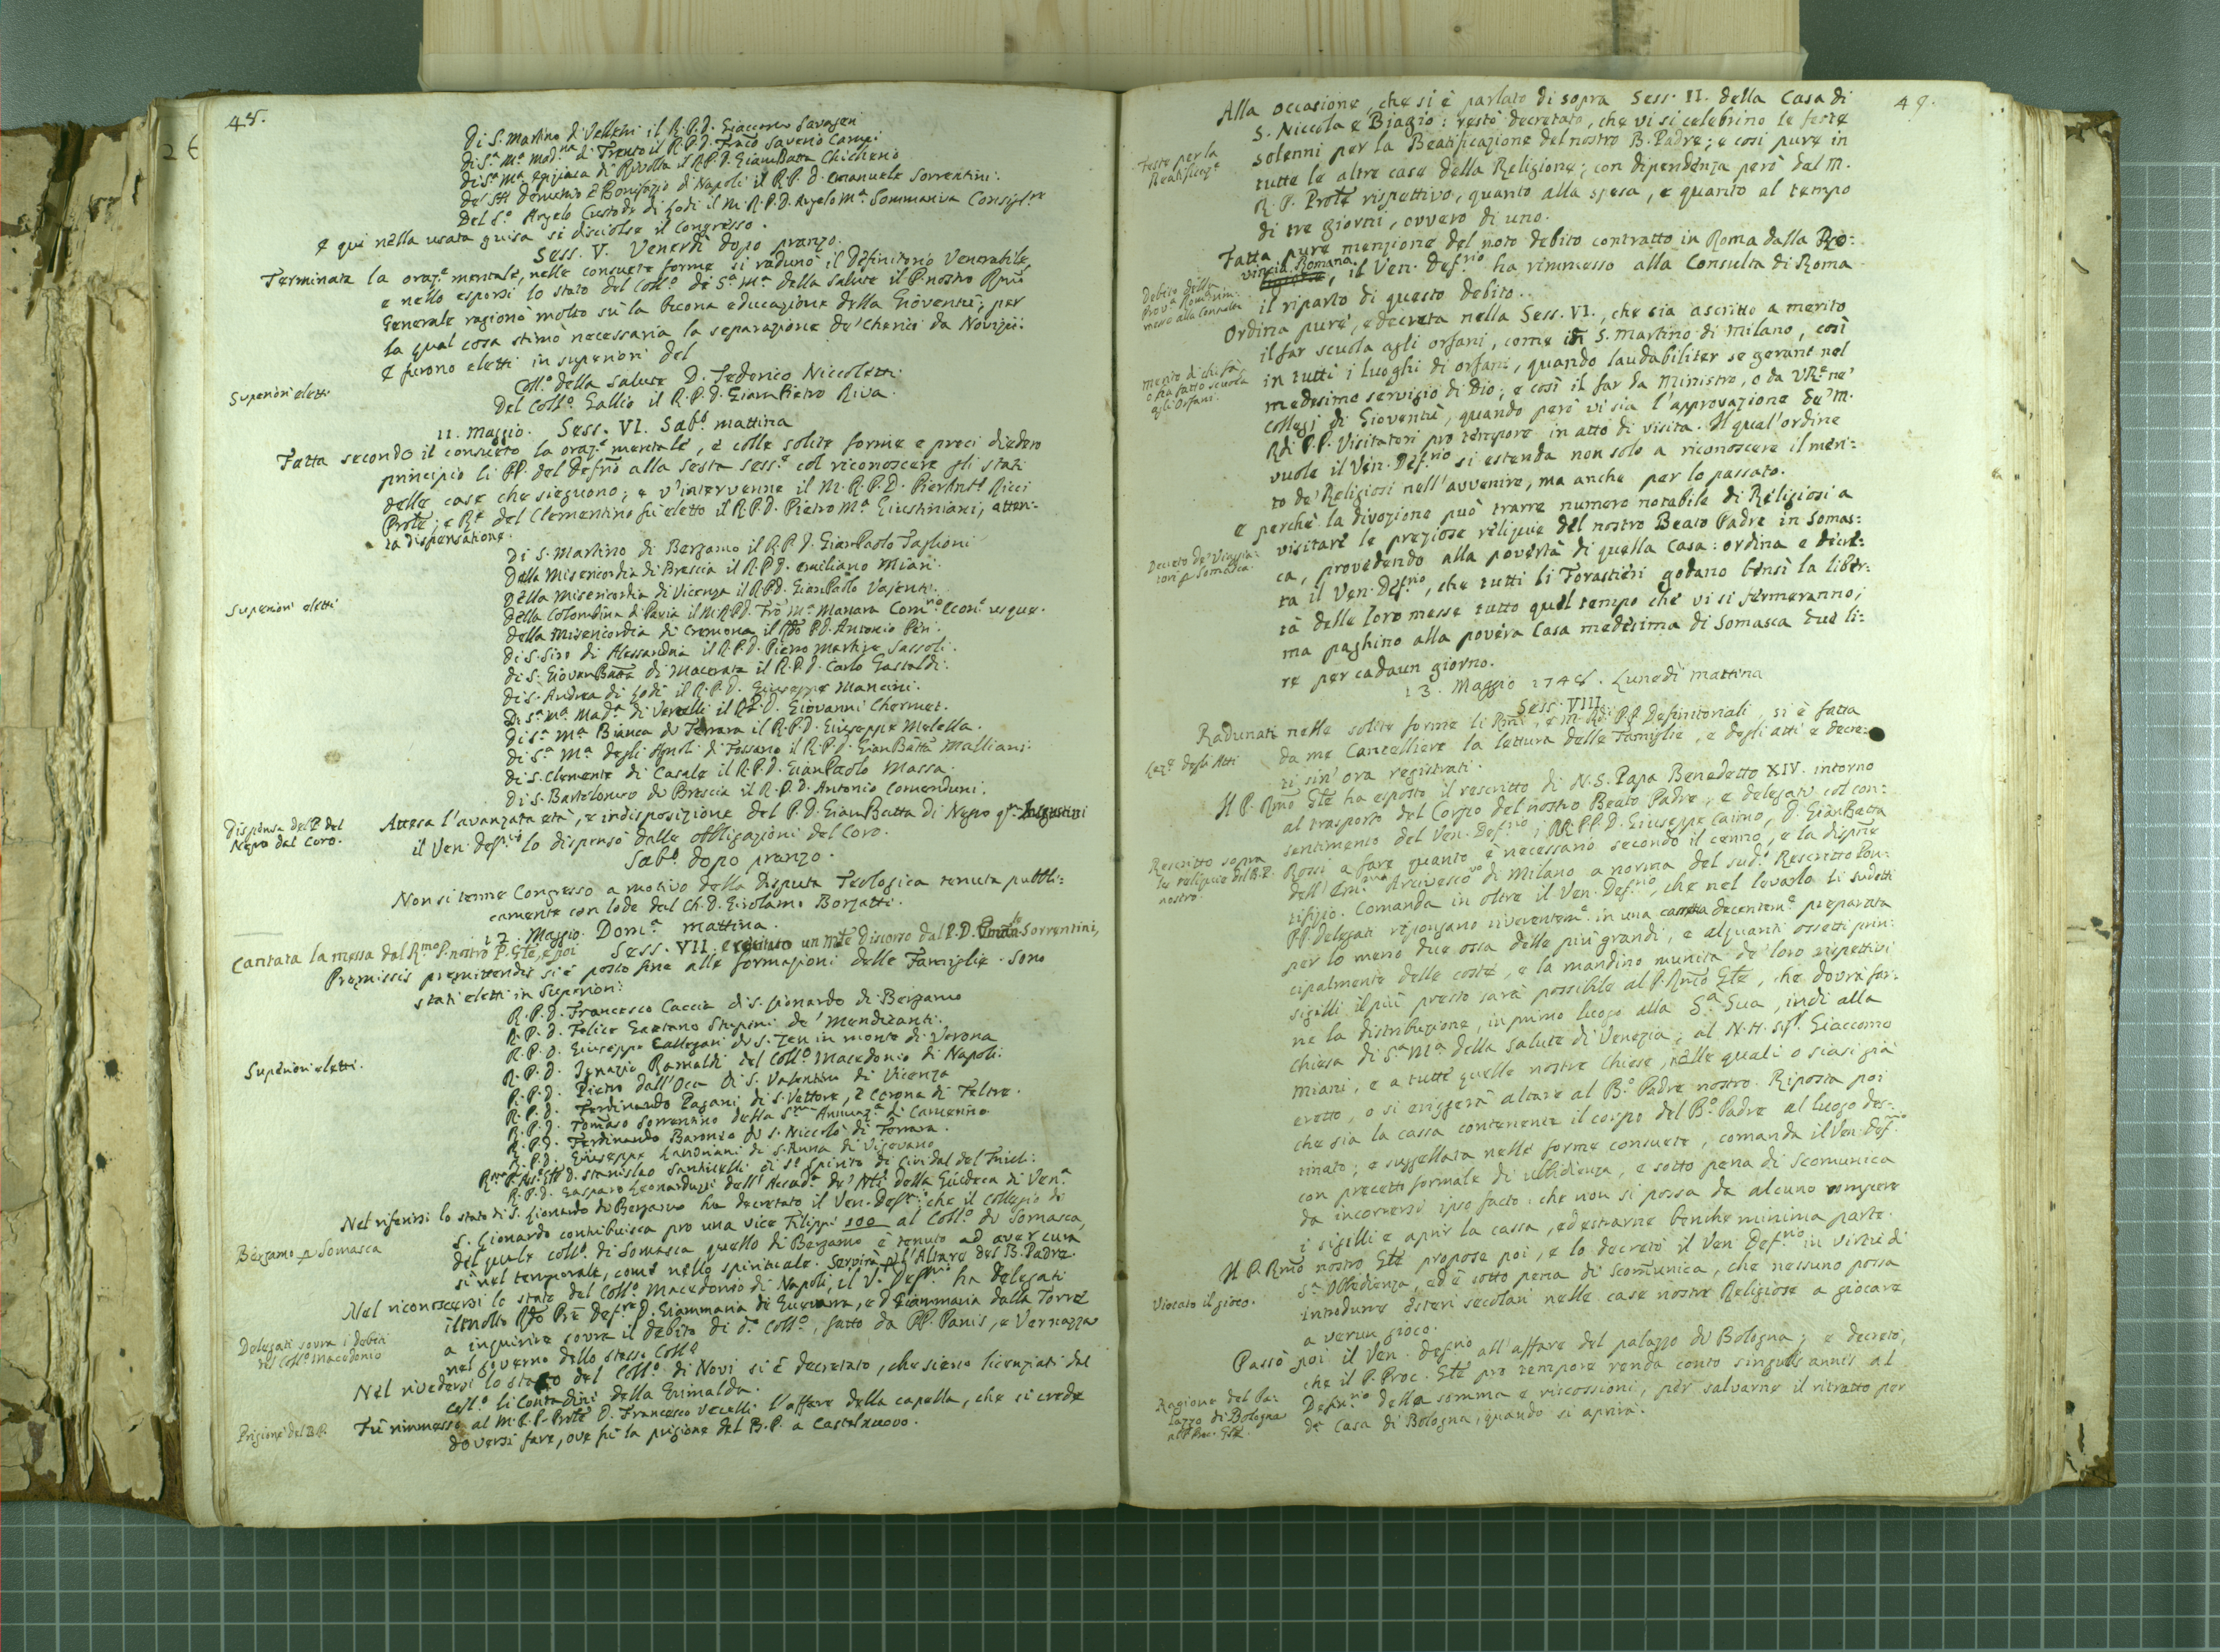 48.
Di S. Martino di Velletri il R.P.D. Giacomo Savageri
di S.ª M.ª Mad.na di Trento il R.P.D. Franco Saverio Campi
di S.ª M.ª Egiziaca di Rivolta il R.P.D. GiamBatta Chicherio
de' SSti Demetrio e Bonifazio di Napoli il R.P. D. Emanuele Sorrentini:
Del S.º Angelo Custode di Lodi il M. R.P.D. Angelo M.ª Sommariva Consigl.re
E qui nella usata guisa si disciolse il Congresso.
Sess. V. Venerdì dopo pranzo.
Terminata la oraz.e mentale, nelle consuete forme si radunò il Definitorio Venerabile,
e nello esporsi lo stato del Coll.º di S.ª M.ª della Salute il P. nostro Rmo
Generale ragionò molto sù la buona educazione della Gioventù; per
la qual cosa stimò necessaria la separazione de' Cherici da Novizii:
E furono eletti in superiori del
Superiori eletti
Coll.º della Salute D. Federico Niccoletti.
Del Coll.º Gallio il R.P.D. GiamPietro Riva.
11. Maggio. Sess. VI. Sab.º mattina
Fatta secondo il consueto la oraz.e mentale, e colle solite forme e preci diedero
principio li PP. del Defrio alla sesta Sess.e col riconoscere gli stati
delle case che sieguono; e v'intervenne il M. R. P. D. PierAnt.º Ricci
Prole; e R.e del Clementino fù eletto il R.P.D. Pietro M.ª Giustiniani, atten-
ta dispensatione.
Di S. Martino di Bergamo il R.P.D. GianPaolo Taglioni
Della Misericordia di Brescia il R.P.D. Emiliano Miani.
Della Misericordia di Vicenza il R.P.D. GianPaolo Vajenti.
Superiori eletti
della Colombina di Pavia il M.R.P.D. Fro M.ª Manara Com.rio Econ.º usque.
della Misericordia di Cremona il Rdo P.D. Antonio Peri.
di S. Siro di Alessandria il R.P.D. Pietro Martire Sassoli.
di S. GiovanBatta di Macerata il R.P.D. Carlo Gastaldi.
Di S. Andrea di Lodi il R.P.D. Giuseppe Mancini.
Di S.ª M.ª Mad.ª di Vercelli il R.P.D. Giovanni Chermet.
di S.ª M.ª Bianca di Ferrara il R.P.D. Giuseppe Melella.
di S.ª M.ª degli Agnoli di Fossano il R.P.D. GianBatta Malliani.
di S. Clemente di Casale il R.P.D. GianPaolo Massa.
di S. Bartolomeo di Brescia il R.P.D. Antonio Comenduni.
Dispensa del P. del
Negro dal Coro.
Attesa l'avanzata età, e indisposizione del P.D. GiamBatta di Negro
il Ven. Defrio lo dispensò dalle obbligazioni del Coro.
Sab.º dopo pranzo.
Non si tenne Congresso a motivo della Disputa Teologica tenuta pubbli:
camente con lode dal Ch. D. Girolamo Borzatti.
12. Maggio. Dom.ª mattina.
Cantata la messa dal R.mo P. nostro P. Gle, e poi Sess. VII. recitato un Discorso dal P.D. Sorrentini,
Praemissis praemittendis si è posto fine alle formazioni delle Famiglie. Sono
stati eletti in Superiori:
R.P.D. Francesco Caccia di S. Lionardo di Bergamo
R.P.D. Felice Gaetano Stupini de' Mendicanti.
R.P.D. Giuseppe Callegari di S. Zen in monte di Verona
Superiori eletti.
R.P.D. Ignazio Ramaldi del Coll.º Macedonio di Napoli.
R.P.D. Pietro dall'Oca di S. Valentino di Vicenza
R.P.D. Ferdinando Pagani di S. Vettore, e Corona di Feltre.
R.P.D. Tomaso Sorrentino della S.ma Annunz.ª di Camerino
R.P.D. Ferdinando Baronio di S. Niccolò di Ferrara.
R.P.D. Giuseppe Landriani di S. Anna di Vigevano
D. Stanislao Santinelli di S.º Spirito di Cividal del Friuli.
R.P.D. Gasparo Leonarduzzi dell'Accad.ª de' Nli della Giudeca di Ven.ª
Nel riferirsi lo stato di S. Lionardo di Bergamo ha decretato il Ven. Defrio: che il Collegio di
S. Lionardo contribuisca pro una vice Filippi 100 al Coll.º di Somasca,
Bergamo p Somasca
del quale coll.º di Somasca quello di Bergamo è tenuto ad aver cura
sì nel temporale, come nello spirituale. Servirà p l'Altare del B. Padre.
Nel riconoscersi lo stato del Coll.º Macedonio di Napoli, il V. Defrio ha delegati
il molto Rdo Pre Def.re D. Giammaria di Guevarra, e D. Giammaria dalla Torre
Delegati sovra i debiti
del Coll.º Macedonio
a inquirire sovra il debito di d.º Coll.º, fatto da PP. Panis, e Vernazza
nel governo dello stesso Coll.º
Nel rivedersi lo stato del Coll.º di Novi si è decretato, che sieno licenziati dal
Coll.º li Contadini della Grimalda.
Prigione del B.P.
Fù rimmesso al M.R.P. Prole D. Francesco Vecelli l'affare della capella, che si crede
doversi fare, ove fù la prigione del B.P. a Castelnuovo.
49.
Alla occasione, che si è parlato di sopra Sess. II. della Casa di
S. Niccola e Biagio: restò decretato, che vi si celebrino le feste
Feste per la
Beatificaz.e
solenni per la Beatificazione del nostro B. Padre; e così pure in
tutte le altre case della Religione; con dipendenza però dal M.
R. P. Prole rispettivo, quanto alla spesa, e quanto al tempo
di tre giorni, ovvero di uno.
Fatta pure menzione del noto debito contratto in Roma dalla Pro:
vincia Romana, il Ven. Def.rio ha rimmesso alla Consulta di Roma
Debito della
Prov.ª Rom. rim:
messo alla Consulta
il riparto di questo debito.
Ordina pure, e decreta nella Sess. VI., che sia ascritto a merito
il far scuola agli orfani, come in S. Martino di Milano, così
merito di chi fà
o ha fatto scuola
agli Orfani.
in tutti i luoghi di orfani, quando laudabiliter se gerant nel
medesimo servigio di Dio; e così il far da Ministro, o da VRe ne'
collegi di Gioventù, quando però vi sia l'approvazione de' M.
Rdi P.P. Visitatori pro tempore in atto di visita. Il qual'ordine
vuole il Ven. Def.rio si estenda non solo a riconoscere il meri:
to de' Religiosi nell'avvenire, ma anche per lo passato.
E perchè la divozione può trarre numero notabile di Religiosi a
visitare le preziose reliquie del nostro Beato Padre in Somas:
Decreto de' Viaggia:
tori p Somasca
ca, provedendo alla povertà di quella Casa: ordina e decre:
ta il Ven. Def.rio, che tutti li Forastieri godano bensì la liber:
tà delle loro messe tutto quel tempo che vi si fermeranno;
ma paghino alla povera Casa medesima di Somasca due li:
re per cadaun giorno.
13. Maggio 1748. Lunedì mattina
Sess. VIII.
Radunati nelle solite forme li Rmi, e M. RR. PP. Definitoriali, si è fatta
Lez.e degli Atti
da me Cancelliere la lettura delle Famiglie, e degli atti e decre:
ti sin'ora registrati.
Il P. Rmo Gle ha esposto il rescritto di N.S. Papa Benedetto XIV. intorno
al trasporto del Corpo del nostro Beato Padre, e delegati col con:
sentimento del Ven. Def.rio i RR. PP. D. Giuseppe Caimo, D. GianBatta
Rescritto sopra
le reliquie del B.P.
nostro.
Rossi a fare quanto è necessario secondo il cenno, e la dispne
dell'Em.mo Arcivesco.vo di Milano a norma del sud.º Rescritto Pon:
tifizio. Comanda in oltre il Ven. Def.rio, che nel levarlo li sudetti
PP. delegati ripongano riverentem.e in una cassetta decentem.e preparata
per lo meno due ossa delle più grandi, e alquanti ossetti prin:
cipalmente delle coste, e la mandino munita de' loro rispettivi
sigilli il più presto sarà possibile al P. Rmo Gle, che dovrà far:
ne la distribuzione, in primo luogo alla S.ª Sua, indi alla
chiesa di S.ª M.ª della Salute di Venezia; al N. H. Sigr. Giacomo
Miani, e a tutte quelle nostre Chiese, nelle quali o siasi già
eretto, o si eriggerà altare al B.º Padre nostro. Riposta poi
che sia la cassa contenente il corpo del B.º Padre al luogo des:
tinato; e suggellata nelle forme consuete, comanda il Ven. Def.rio
con precetto formale di ubbidienza, e sotto pena di Scomunica
da incorrersi ipso facto: che non si possa da alcuno rompere
i sigilli e aprir la cassa, ed estrarne benchè minima parte.
Il P. Rmo nostro Gle propose poi, e lo decretò il Ven. Def.rio in virtù di
S.ª Obbedienza, ed è sotto pena di Scomunica, che nessuno possa
Vietato il gioco.
introdurre Esteri secolari nelle case nostre Religiose a giocare
a verun gioco.
Passò poi il Ven. Defrio all'affare del palazzo di Bologna; e decretò,
che il P. Proc. Gle pro tempore renda conto singulis annis al
Ragione del Pa:
lazzo di Bologna
al P. Proc. Gle.
Defin.rio della somma e riscossioni, per salvarne il ritratto per
da Casa di Bologna, quando si aprirà.